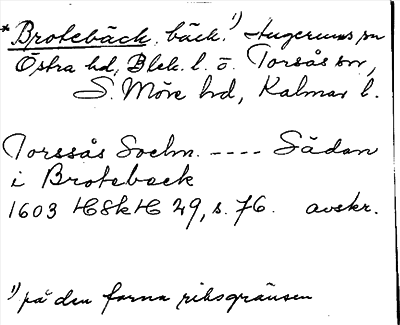 * Brotebäck, bäck.¹⁾ Augerums sn
Östra hd, Blek. l. o. Torsås sn,
S. Möre hd, Kalmar l.
Torssås Sochn. ---- Sådan
i Brotebeck
1603 HSkH 29, s. 76. avskr.
¹⁾ på den forna riksgränsen